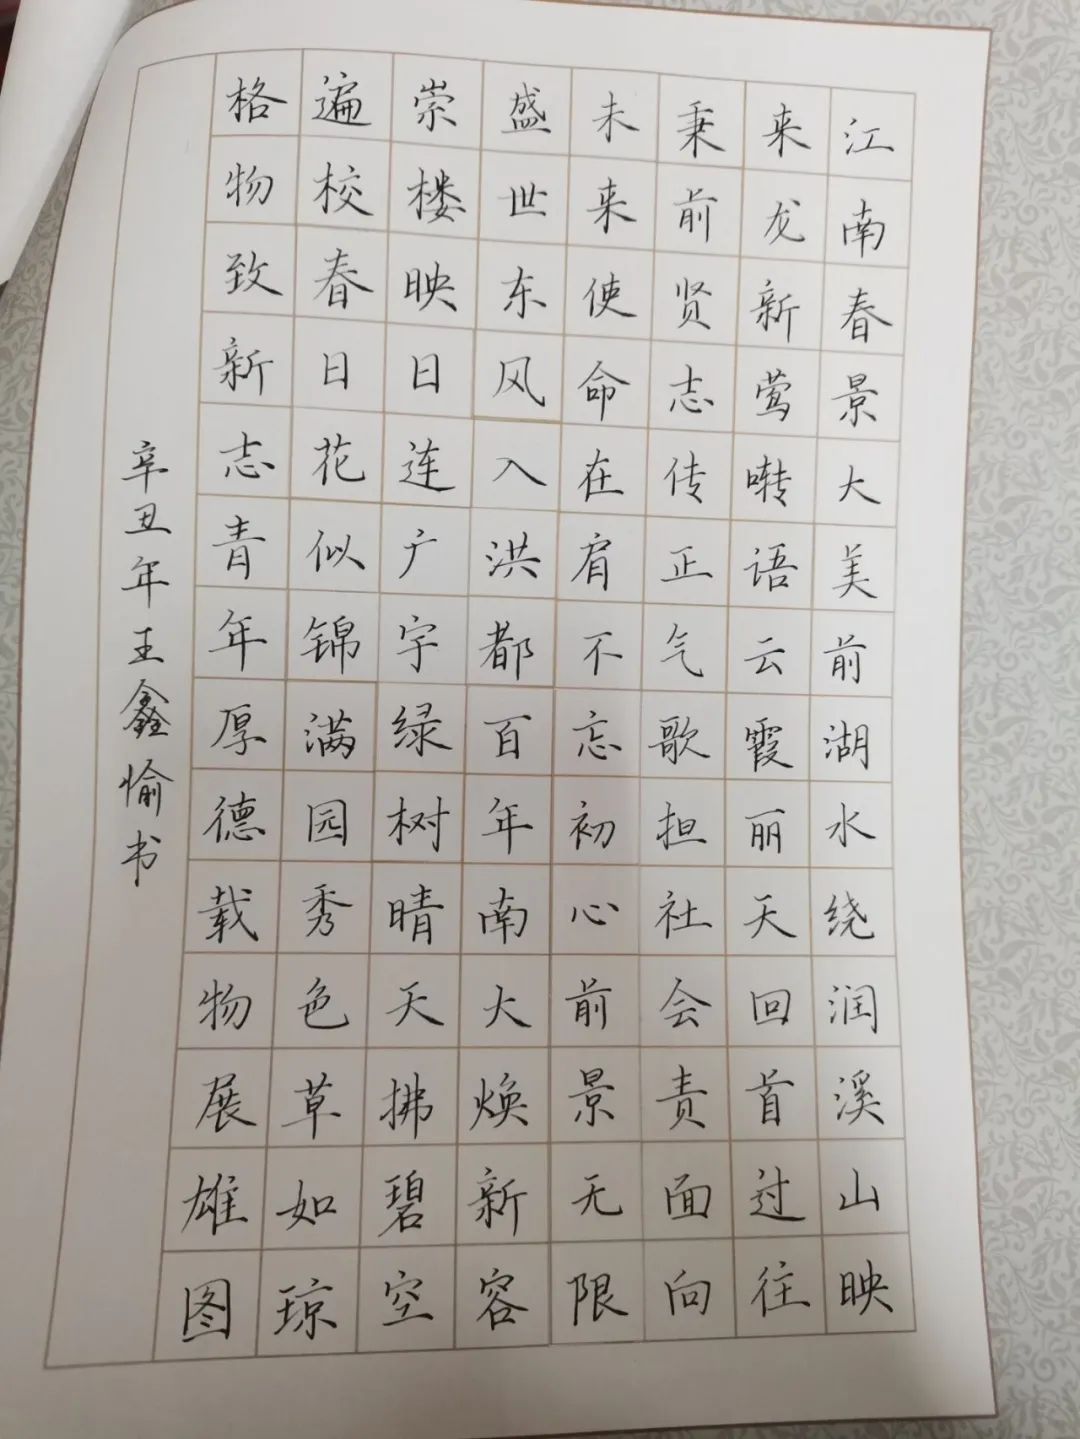 江南春景大美前湖水绕润溪山映
来龙新莺啭语云霞丽天回首过往
秉前贤志传正气歌担社会责面向
未来使命在肩不忘初心前景无限
盛世东风入洪都百年南大焕新容
崇楼映日连广宇绿树晴天拂碧空
遍校春日花似锦满园秀色草如琼
格物致新志青年厚德载物展雄图
辛丑年王鑫愉书